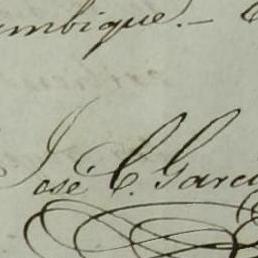 ambique. —
José C. Garci